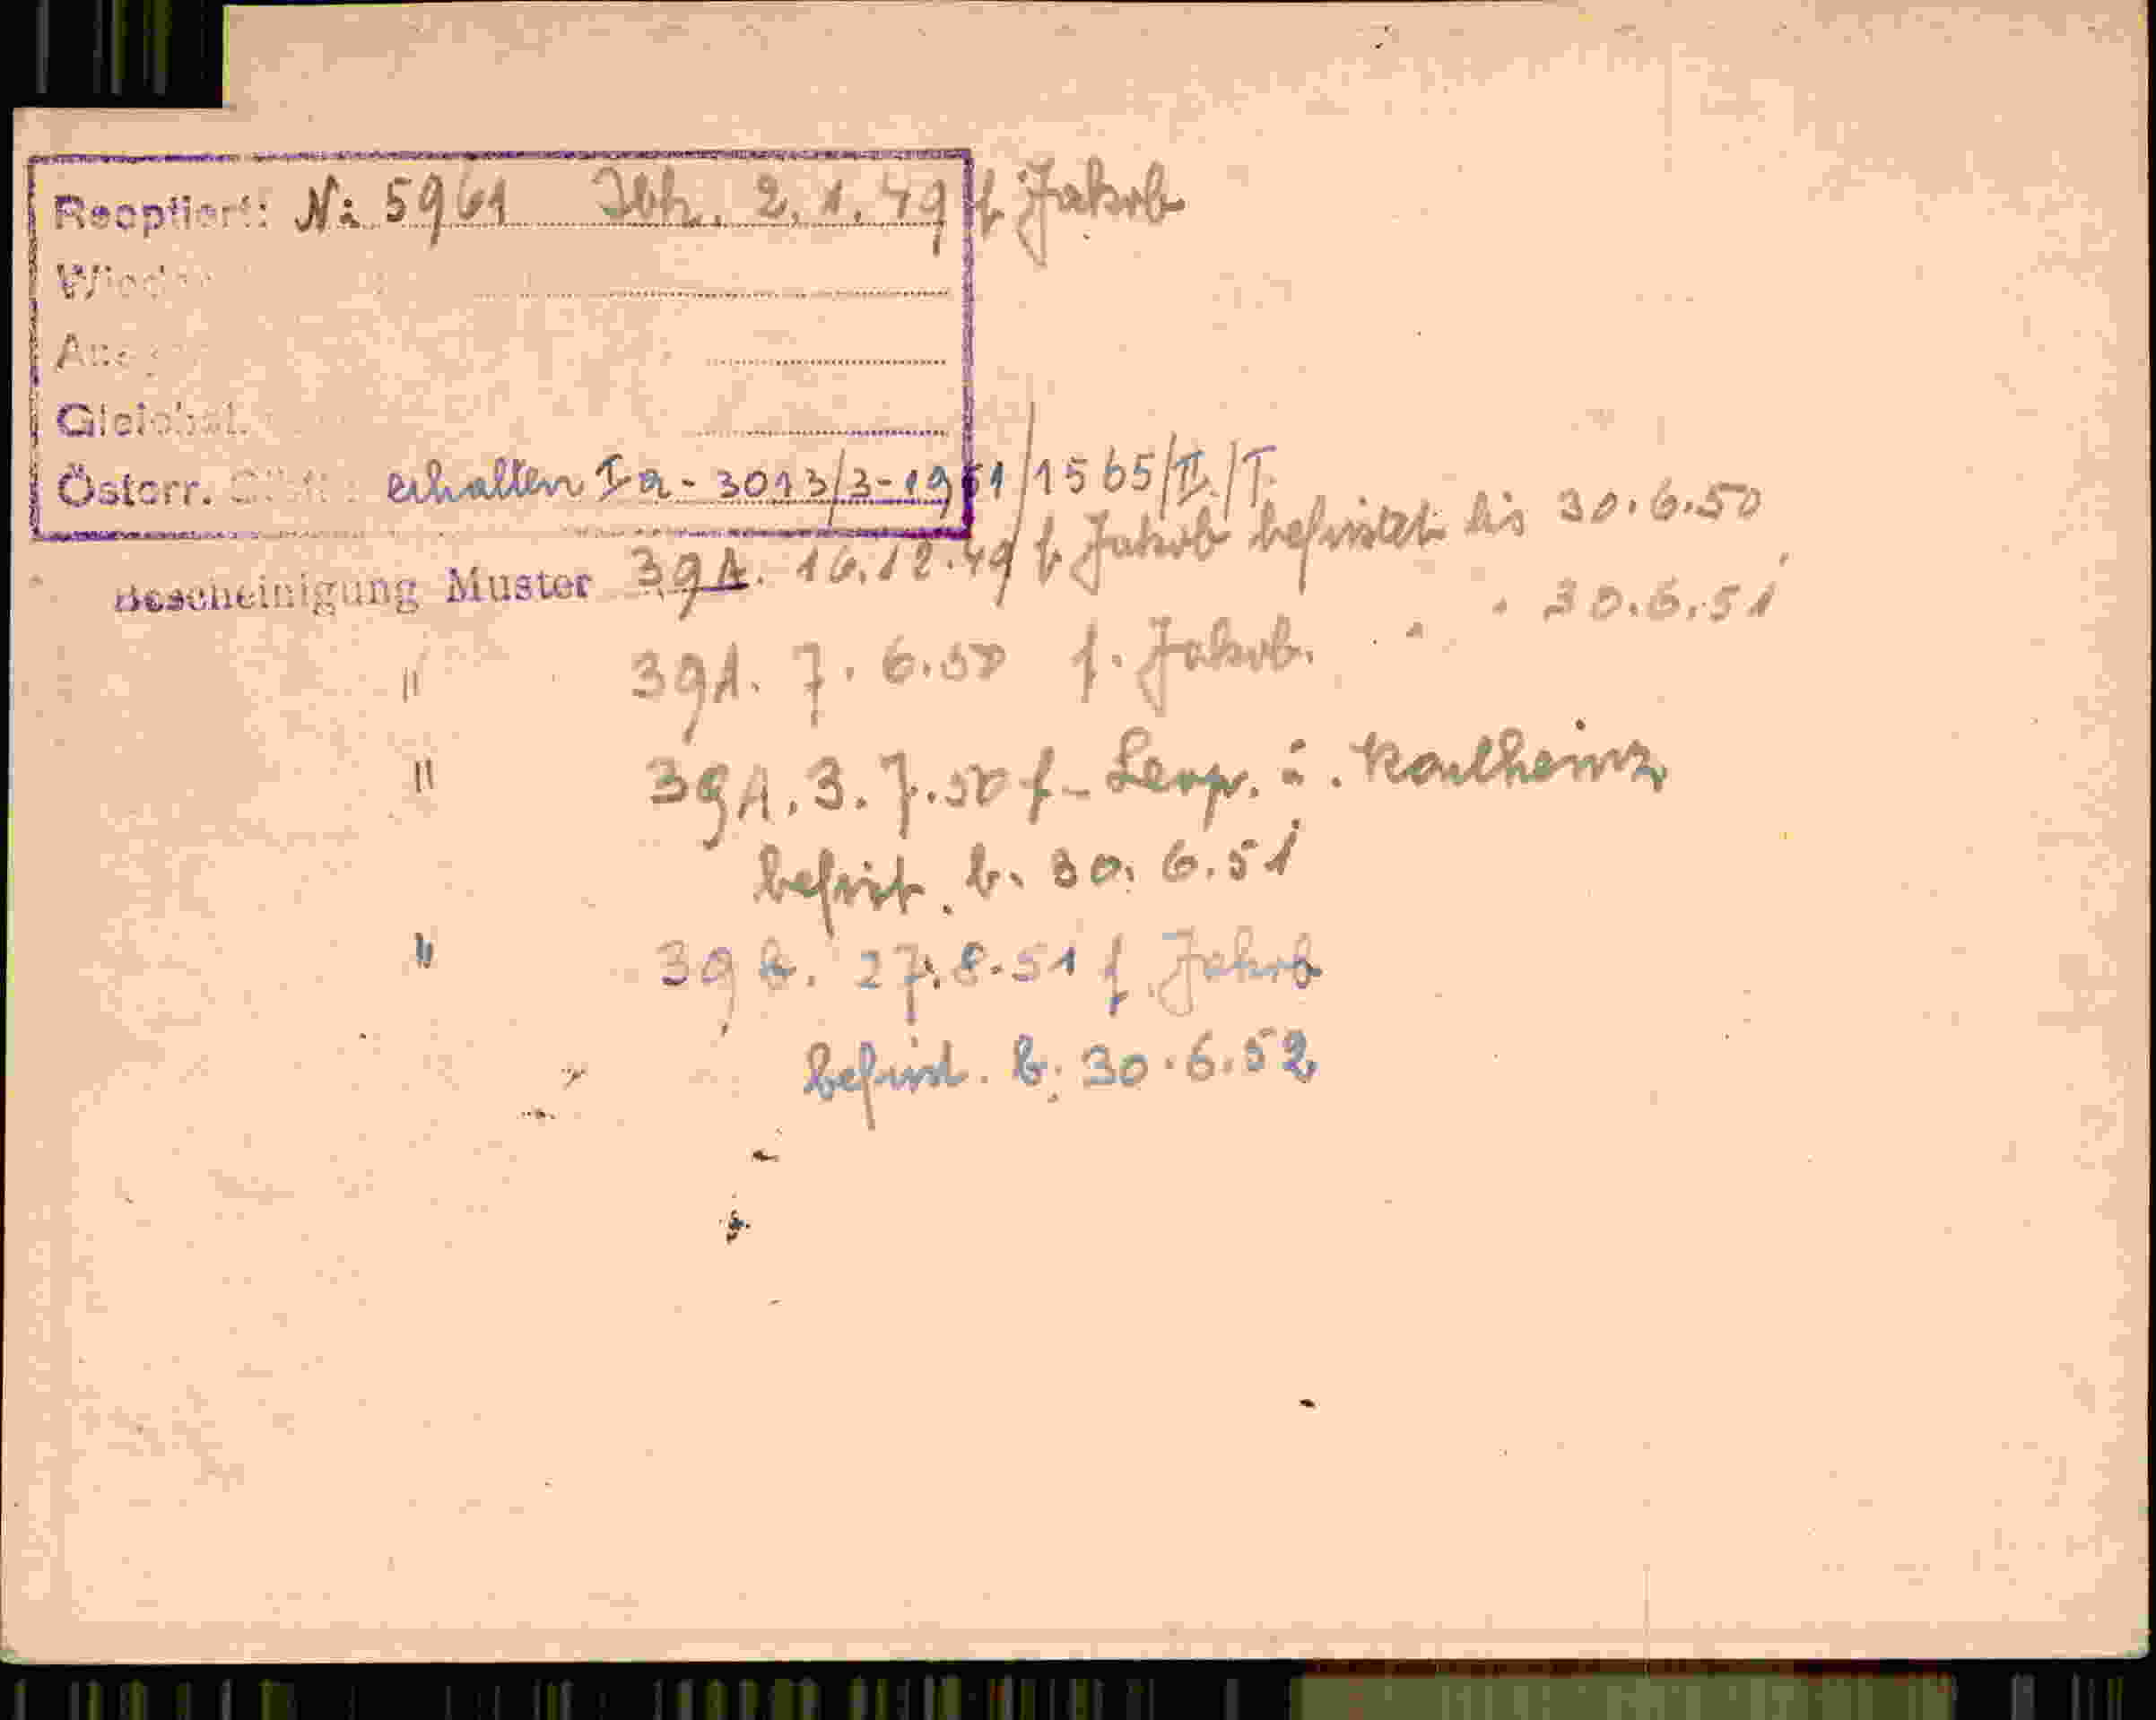 Reoptiert: Ni 5961 Ibk. 2.1.49 f Jakob
Wieder
Gleichst.
Österr. erhalten Ia - 3013/3-1951/1565/II./T.
Bescheinigung Muster 39A. 16.12.49 f Jakob befristet bis 30.6.50
" 39A. 7.6.50 f. Jakob. " " 30.6.51
" 39A. 3.7.50 f. Leop. u. Karlheinz
befrist. b. 30.6.51
" 39 a. 27.8.51 f. Jakob
befrist. b. 30.6.52